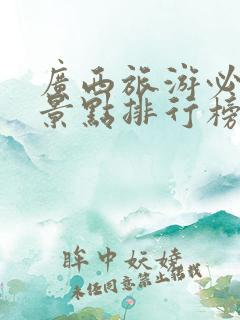 廣西旅游必
景點排行榜
眸中妖嬈
未經同意禁止搭載